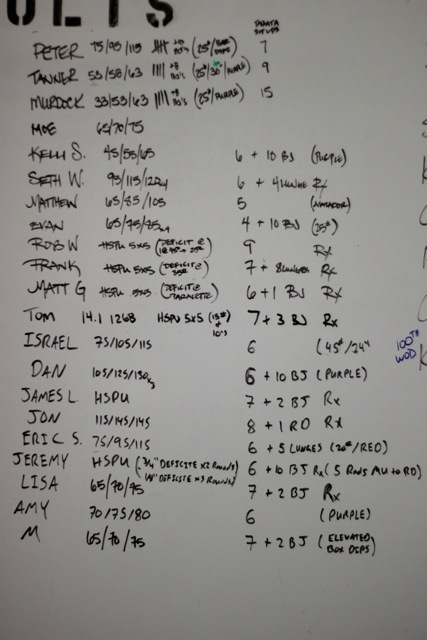 ULTS
TABATA
SITUPS
PETER 75/95/115 (25#/BAR DIPS) 7
TANNER 53/58/63 (25#/30#/PURPLE) 9
MURDOCK 33/53/63 (25#/PURPLE) 15
MOE 65/70/75
KELLI S. 45/55/65 6 + 10 BJ (PURPLE)
SETH W. 95/115/120 6 + 4 LUNGE RX
MATTHEW 65/85/105 5
EVAN 65/75/85 4 + 10 BJ (25#)
ROB W HSPU 5X5 (DEFICIT @ 9 RX
FRANK HSPU 5X5 (DEFICIT @ 7 + 8 LUNGES RX
MATT G HSPU 5X5 (DEFICITE 6 + 1 BJ RX
TOM 14.1 1268 HSPU 5X5 (15# 7 + 3 BJ RX
ISRAEL 75/105/115 6 (45#/24"
100TH
WOD
DAN 105/125/130 6 + 10 BJ (PURPLE)
JAMES L. HSPU 7 + 2 BJ RX
JON 115/145/145 8 + 1 RD RX
ERIC S. 75/95/115 6 + 5 LUNGES (20#/RED)
JEREMY HSPU (3/4" DEFICITE X2 ROUNDS 6 + 10 BJ RX (5 RNDS MU TO RD)
LISA 65/70/75 DEFICITE X3 ROUNDS) 7 + 2 BJ RX
AMY 70/75/80 6 (PURPLE)
M 65/70/75 7 + 2 BJ (ELEVATED BOX DIPS)